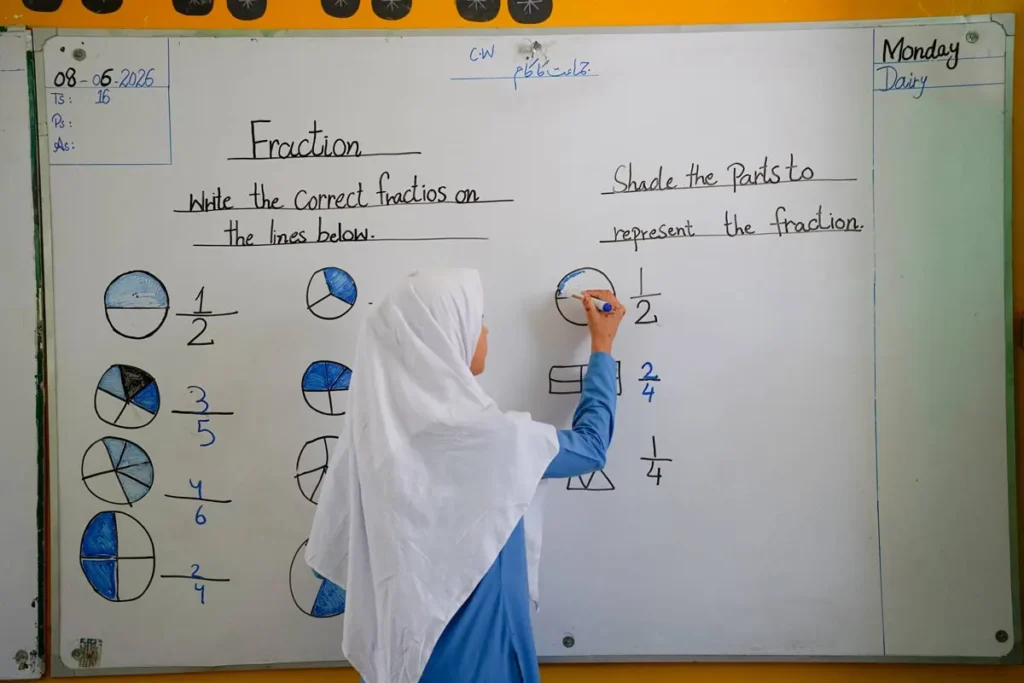 08-06-2026
Ts: 16
Ps:
As:
C.W
جماعت کا کام
Monday
Dairy
Fraction
Write the Correct fractios on
the lines below.
1
2
3
5
4
6
2
4
Shade the Parts to
represent the fraction.
1
2
2
4
1
4